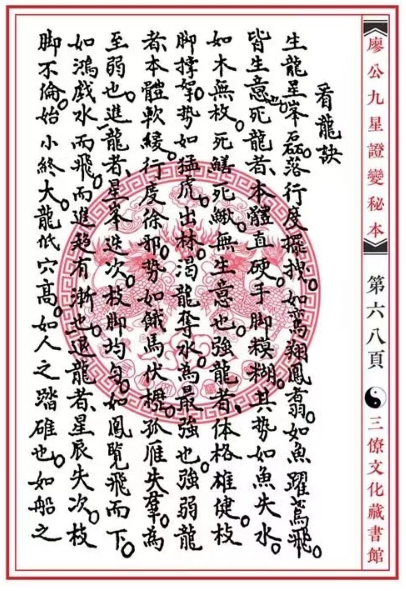 廖公九星證變秘本
第六八頁
三僚文化藏書館
看龍訣
生龍星峯磊落行度擺拽。如鸞翔鳳翥。如魚躍鳶飛。
皆生意。死龍者、本體直硬。手脚模糊。其势如魚失水。
如木無枝。死鱔死鰍。無生意也。強龍者、体格雄健。枝
脚撑拏。势如猛虎出林。渴龍奪水。爲最強也。弱龍
者、本體軟緩。行度徐邪。勢如餓馬伏櫪。孤雁失羣。爲
至弱也。進龍者星峯迭次。枝脚均勻。如鳳覽飛而下。
如鴻戲水而飛。而進趨有漸也。退龍者、星辰失次。枝
脚不倫。始小終大。龍低穴高。如人之踏碓也。如船之